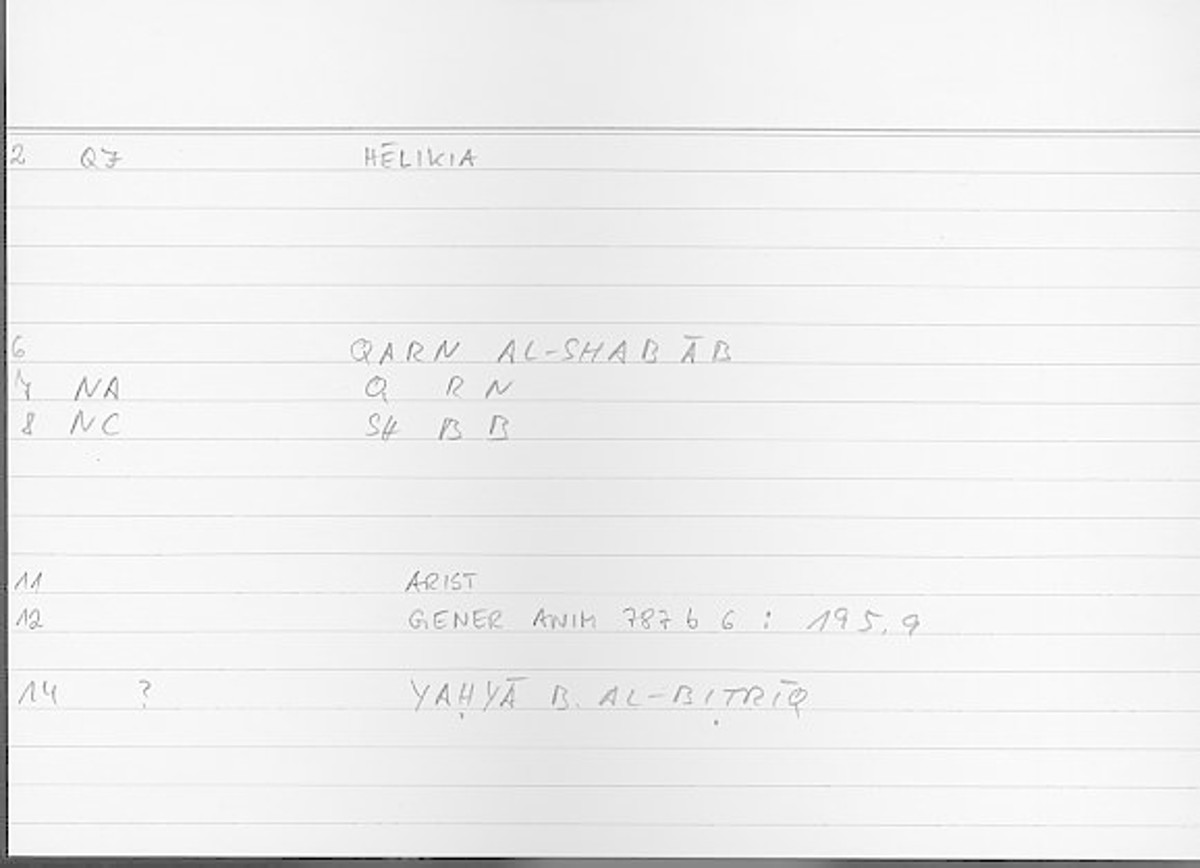 2 Q7 HĒLIKIA
6 QARN AL-SHABĀB
7 NA Q R N
8 NC SH B B
11 ARIST
12 GENER ANIM 787 b 6 : 195.9
14 ? YAḤYĀ B. AL-BIṬRĪQ